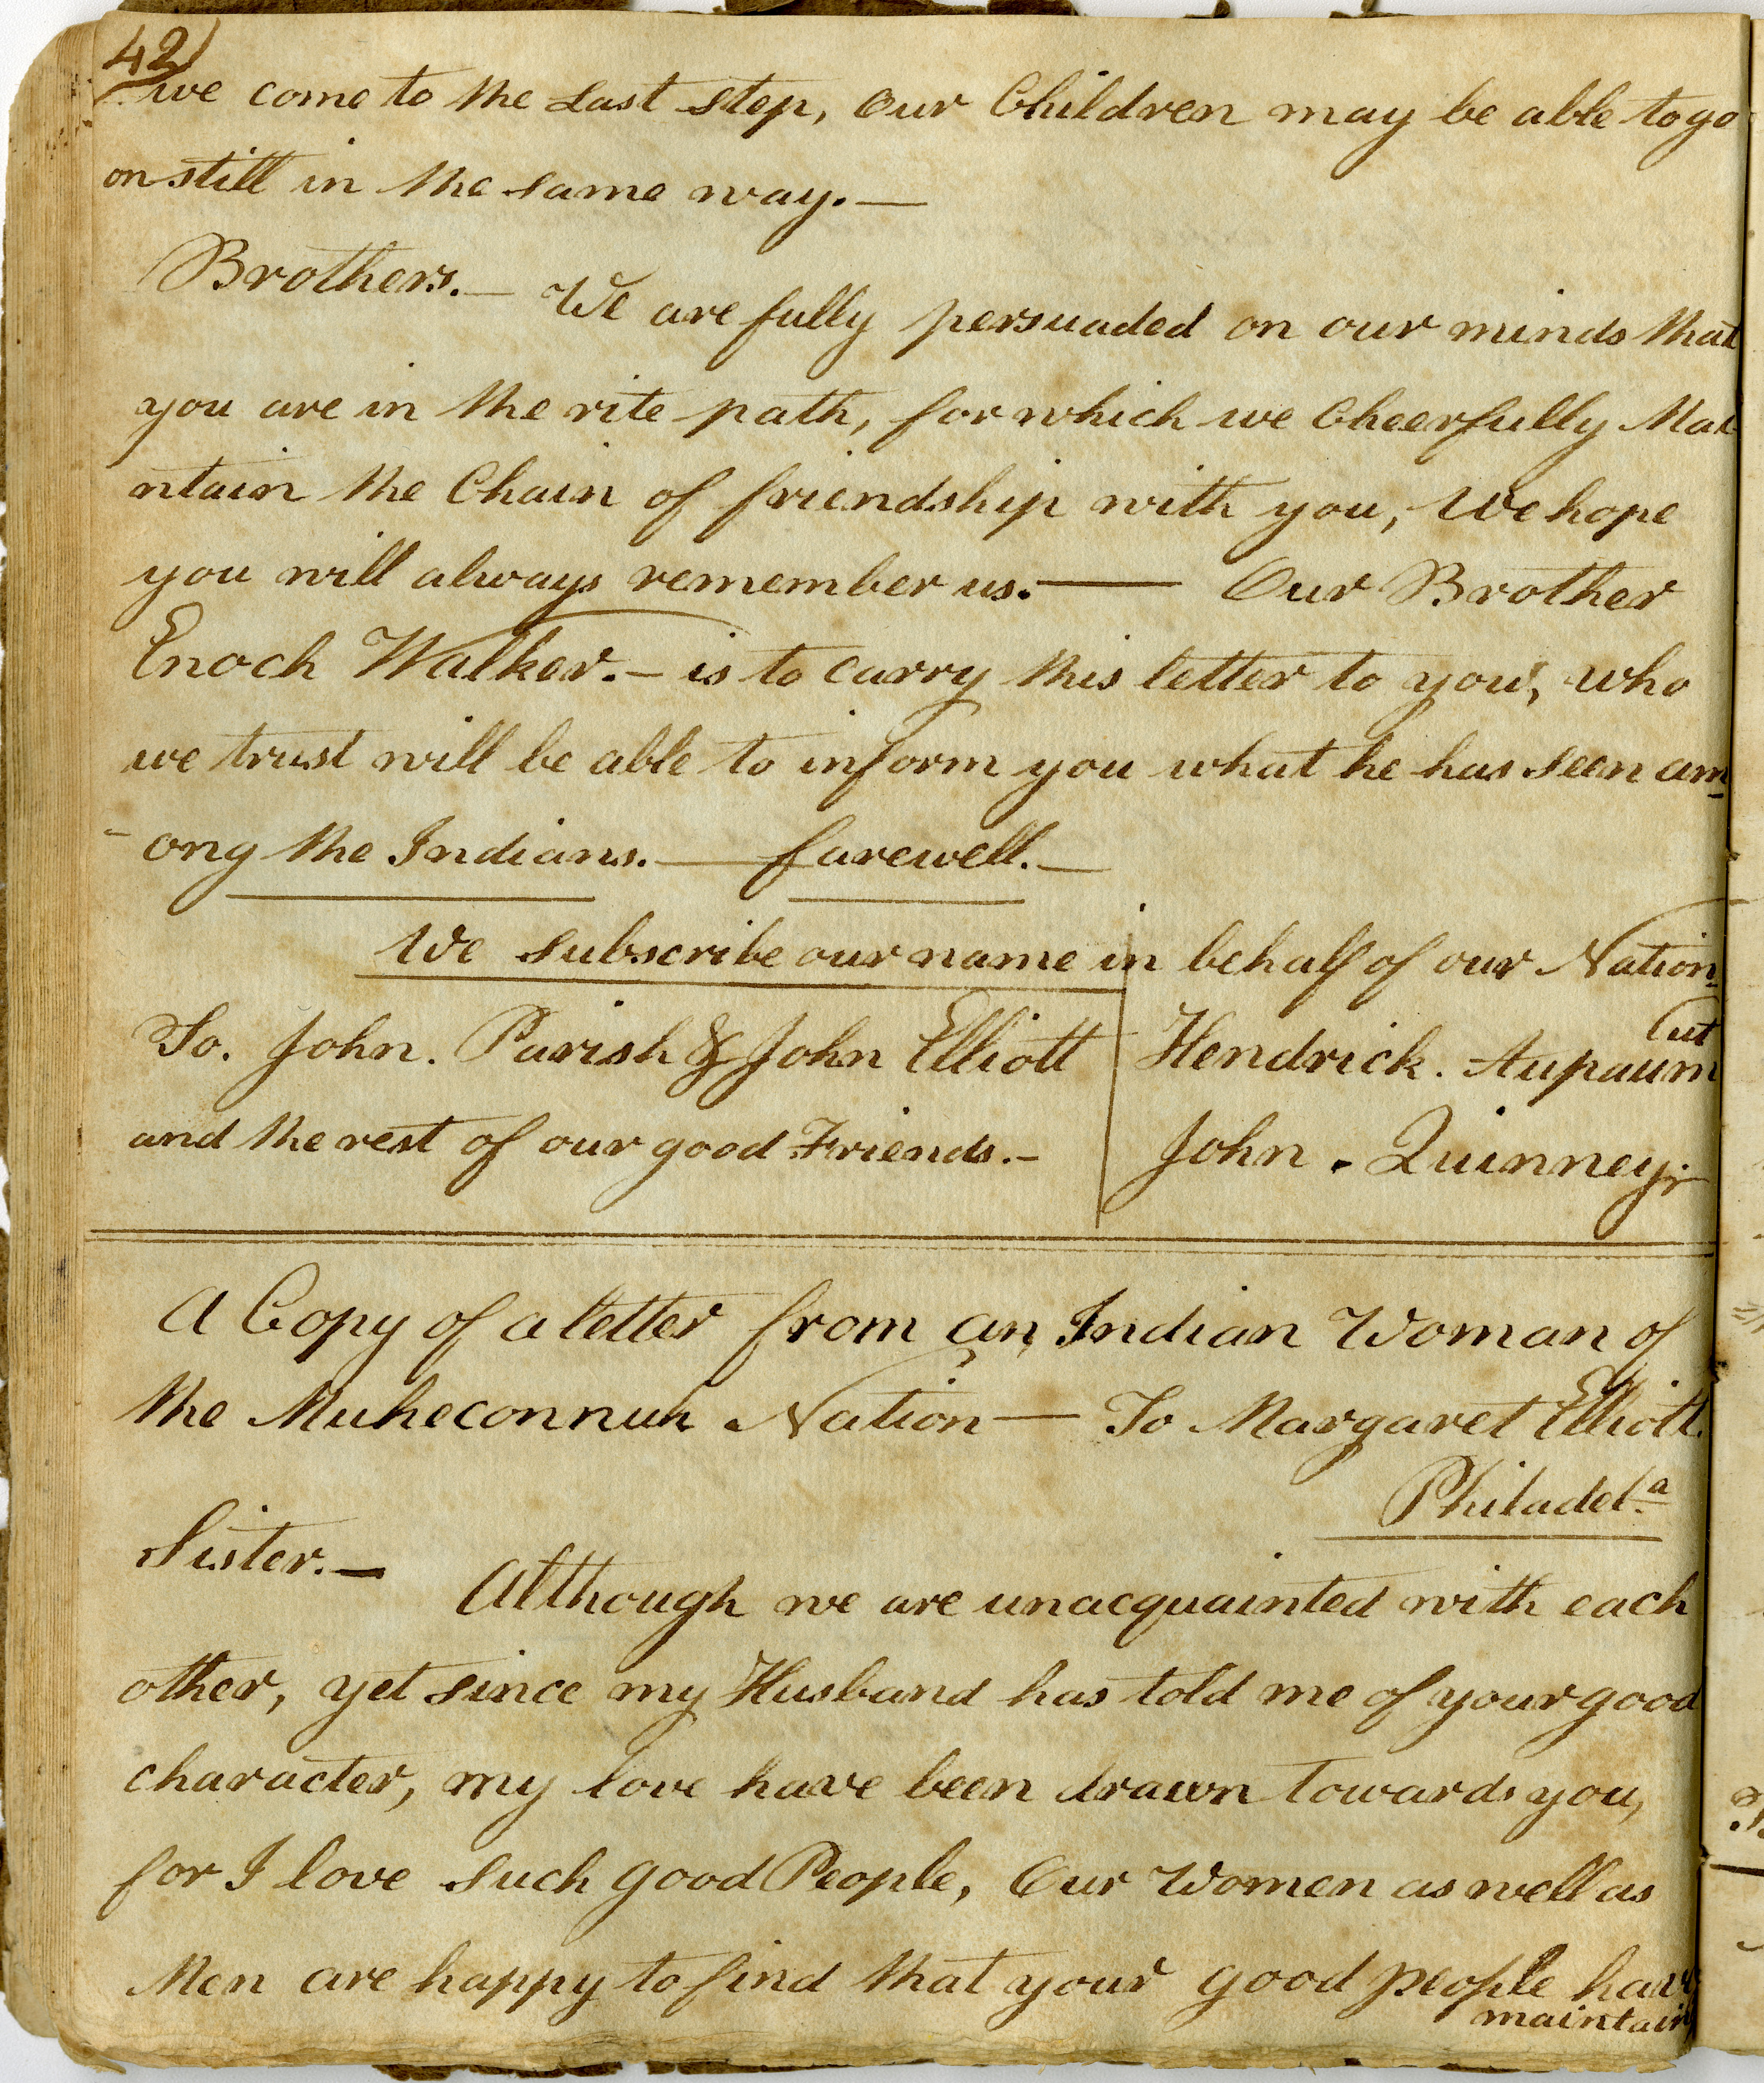 42)
we come to the Last step, our Children may be able to go
on still in the same way.—
Brothers.— We are fully persuaded on our minds that
you are in the rite path, for which we Cheerfully Mai
ntain the Chain of friendship with you, We hope
you will always remember us.— Our Brother
Enoch Walker.— is to carry this letter to you, who
we trust will be able to inform you what he has seen am-
-ong the Indians.— farewell.—
We subscribe our name in behalf of our Nation.
To. John. Parish & John Elliott
and the rest of our good Friends.—
Hendrick. Aupaum
ut
John. Quinney.
A Copy of a letter from an Indian Woman of
the Muheconnuk Nation — To Margaret Elliott.
Philadelª
Sister.— Although we are unacquainted with each
other, yet since my Husband has told me of your good
character, my love have been drawn towards you,
for I love such good People, Our Women as well as
Men are happy to find that your good people have
maintain